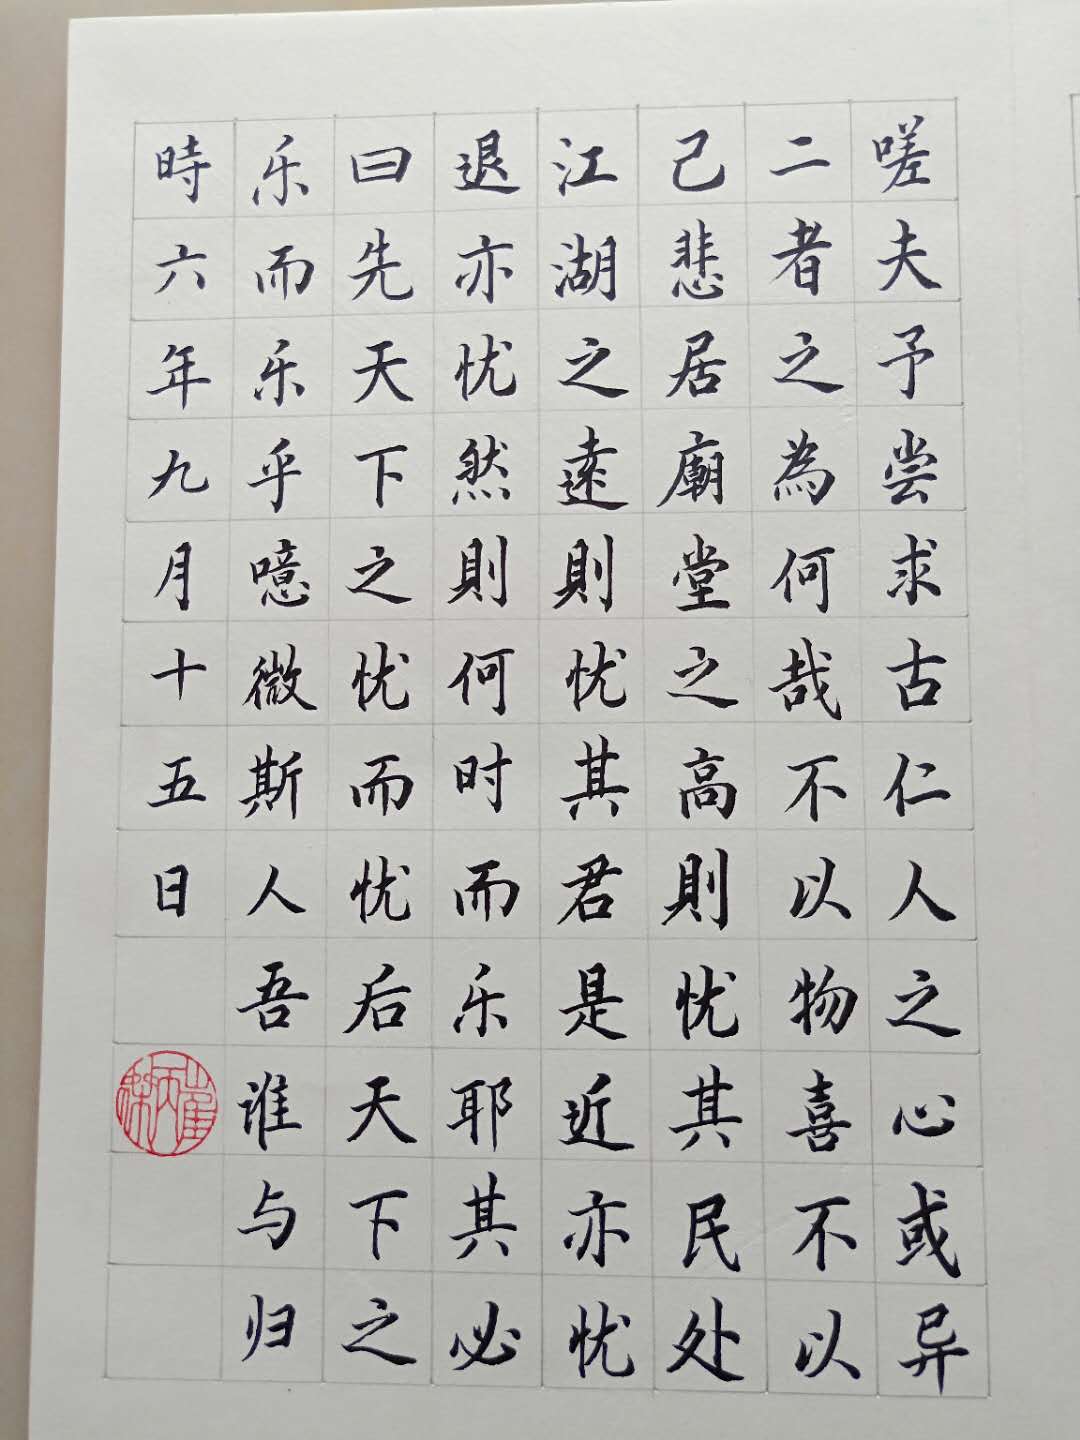 嗟夫予尝求古仁人之心或异
二者之為何哉不以物喜不以
己悲居廟堂之高則忧其民处
江湖之遠則忧其君是近亦忧
退亦忧然則何时而乐耶其必
曰先天下之忧而忧后天下之
乐而乐乎噫微斯人吾谁与归
時六年九月十五日